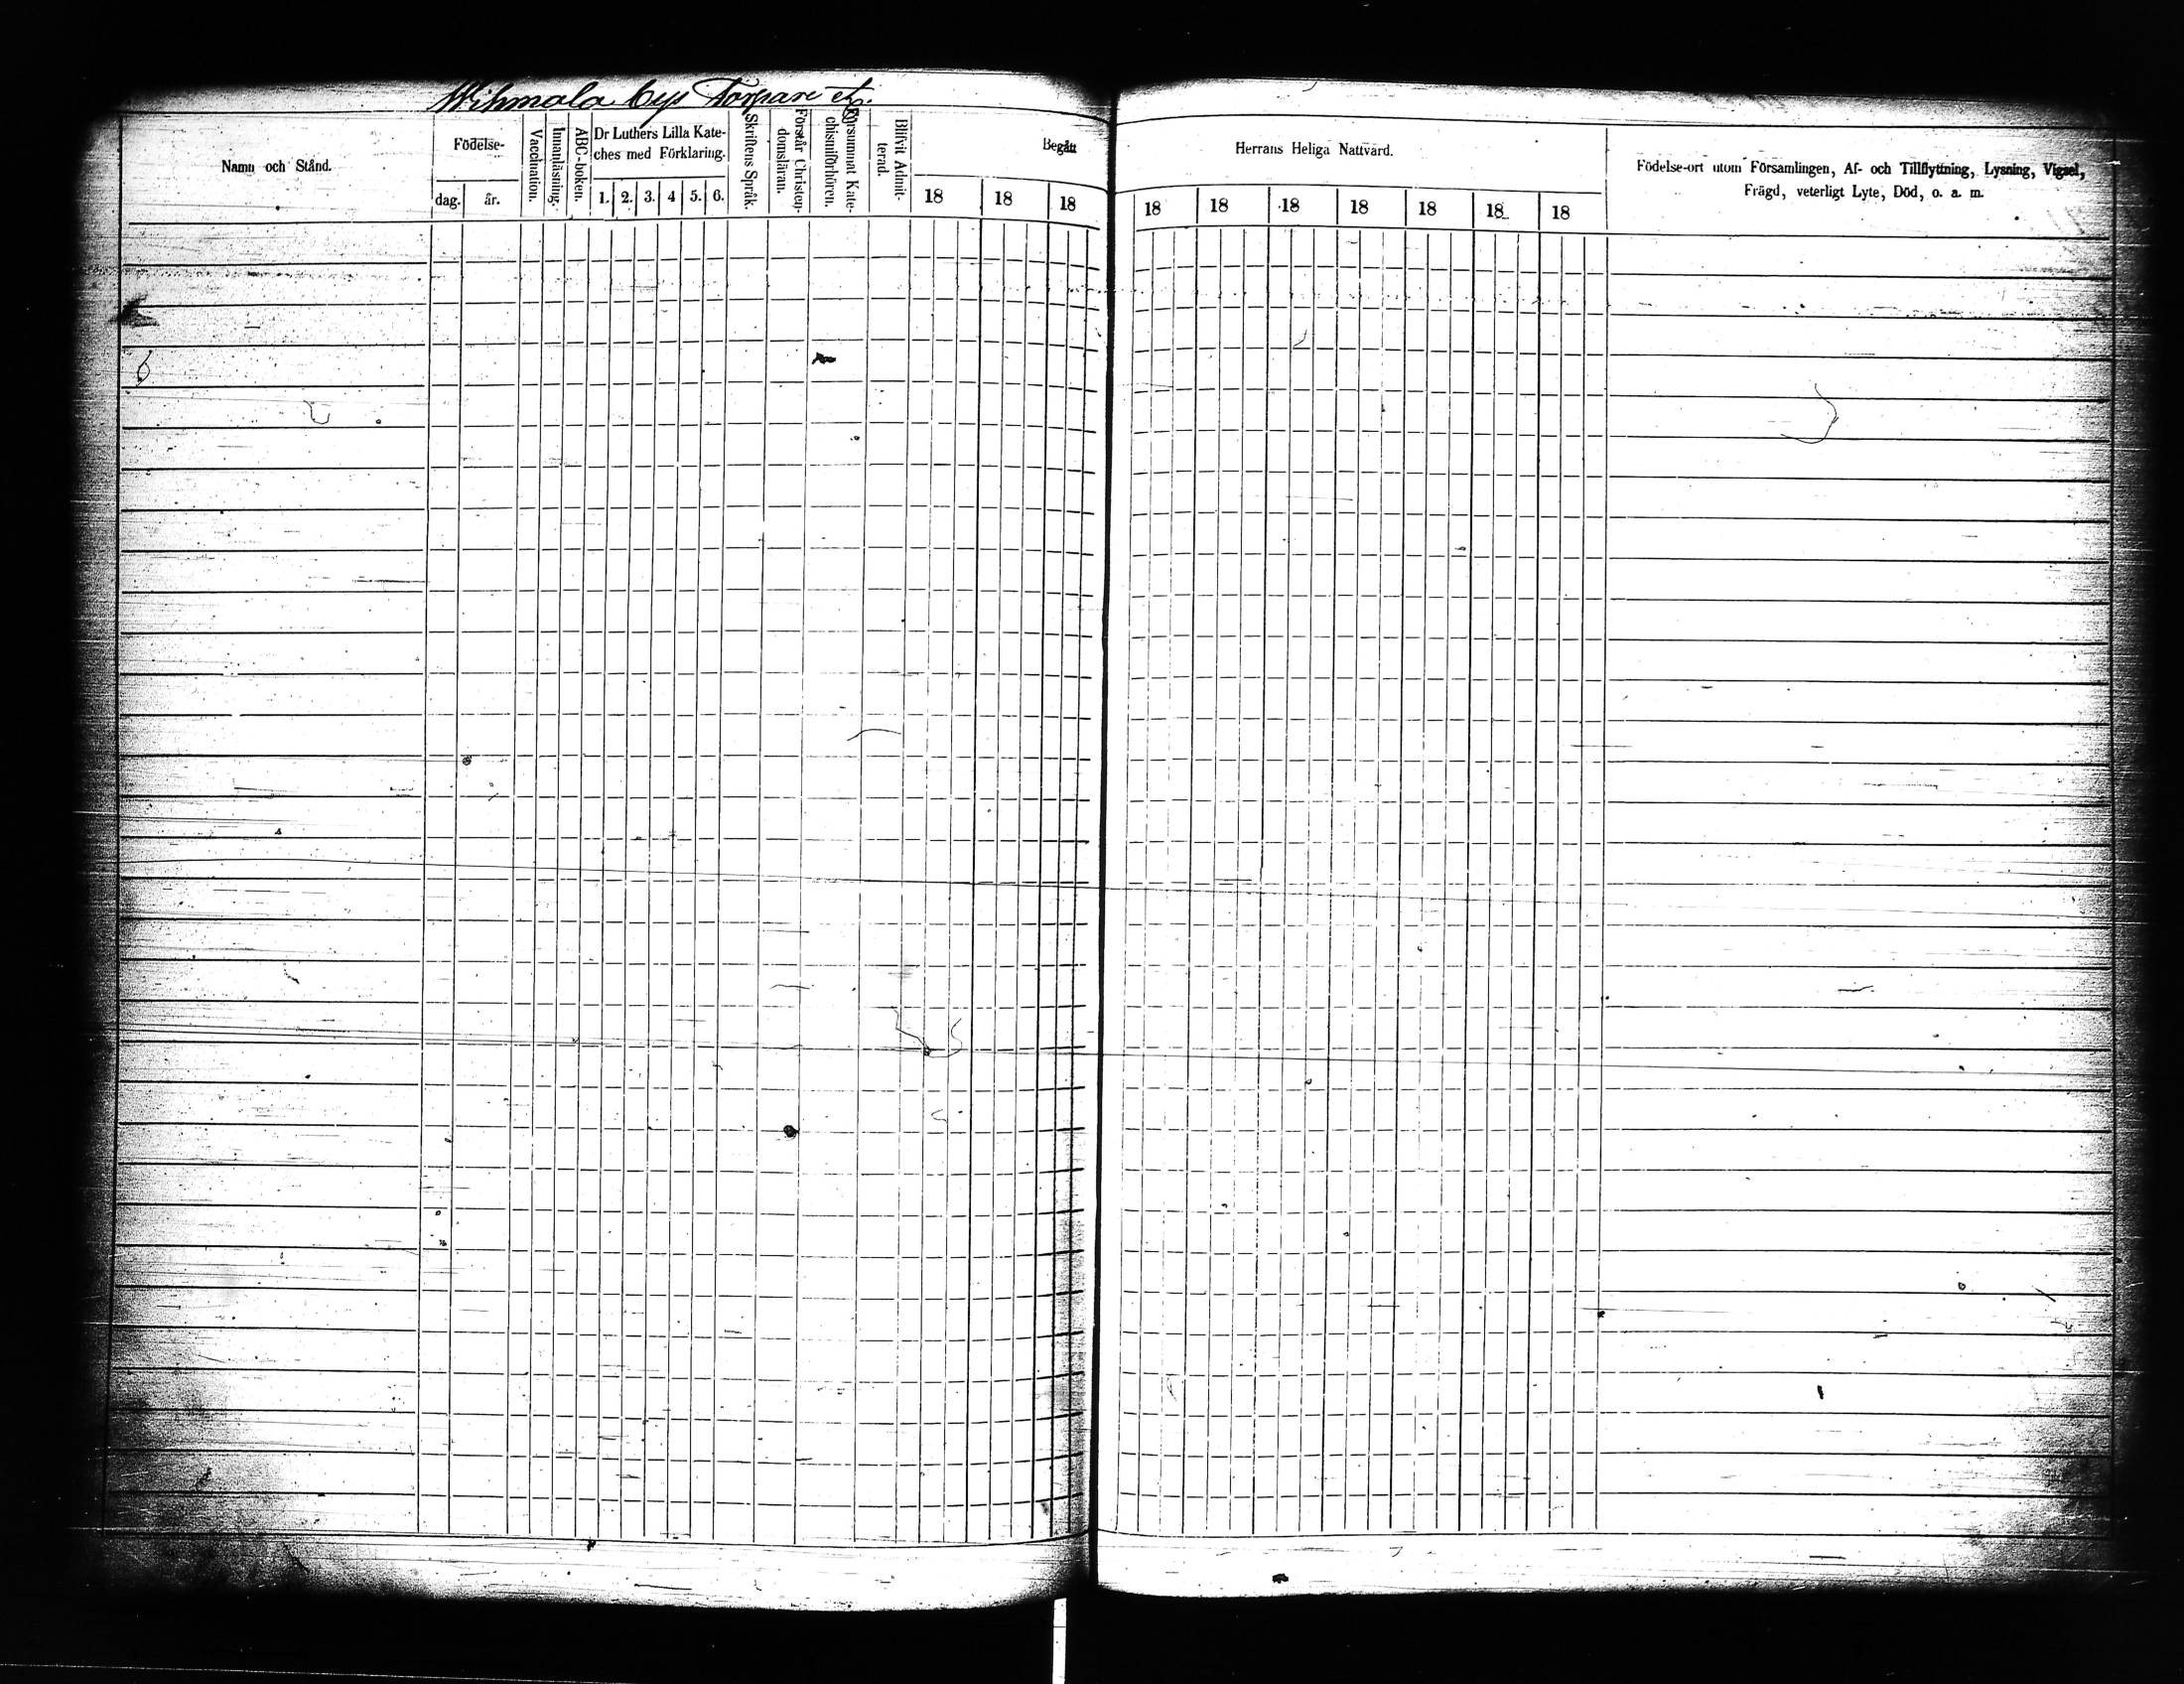 Wihmala bys Torpare etc.
Namn och Stånd.
Födelse-
dag. år.
Vacchnation.
Innanläsning.
ABC-boken.
Dr Luthers Lilla Kate-
ches med Förklaring.
1. 2. 3. 4 5. 6.
Skriftens Språk.
Förstår Christen-
domsläran.
Försummat Kate-
chismiförhören.
Blifvit Admit-
terad.
Begått
18 18 18
Herrans Heliga Nattvard.
18 18 18 18 18 18 18
Födelse-ort utom Församlingen, Af- och Tillflyttning, Lysning, Vigsel,
Frägd, veterligt Lyte, Död, o. a. m.